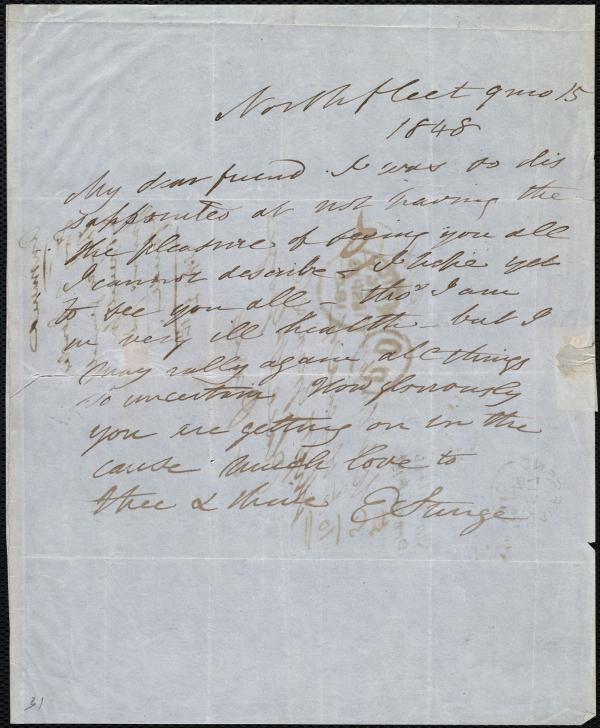 Northfleet 9mo 15
1848
My dear friend I was so dis
sappointed at not having the
the pleasure of seeing you all
I cannot describe & I hope yet
to see you all - tho' I am
in very ill health - but I
may rally again all things
so uncertain How gloriously
you are getting on in the
cause much love to
thee & thine E Sturge
31